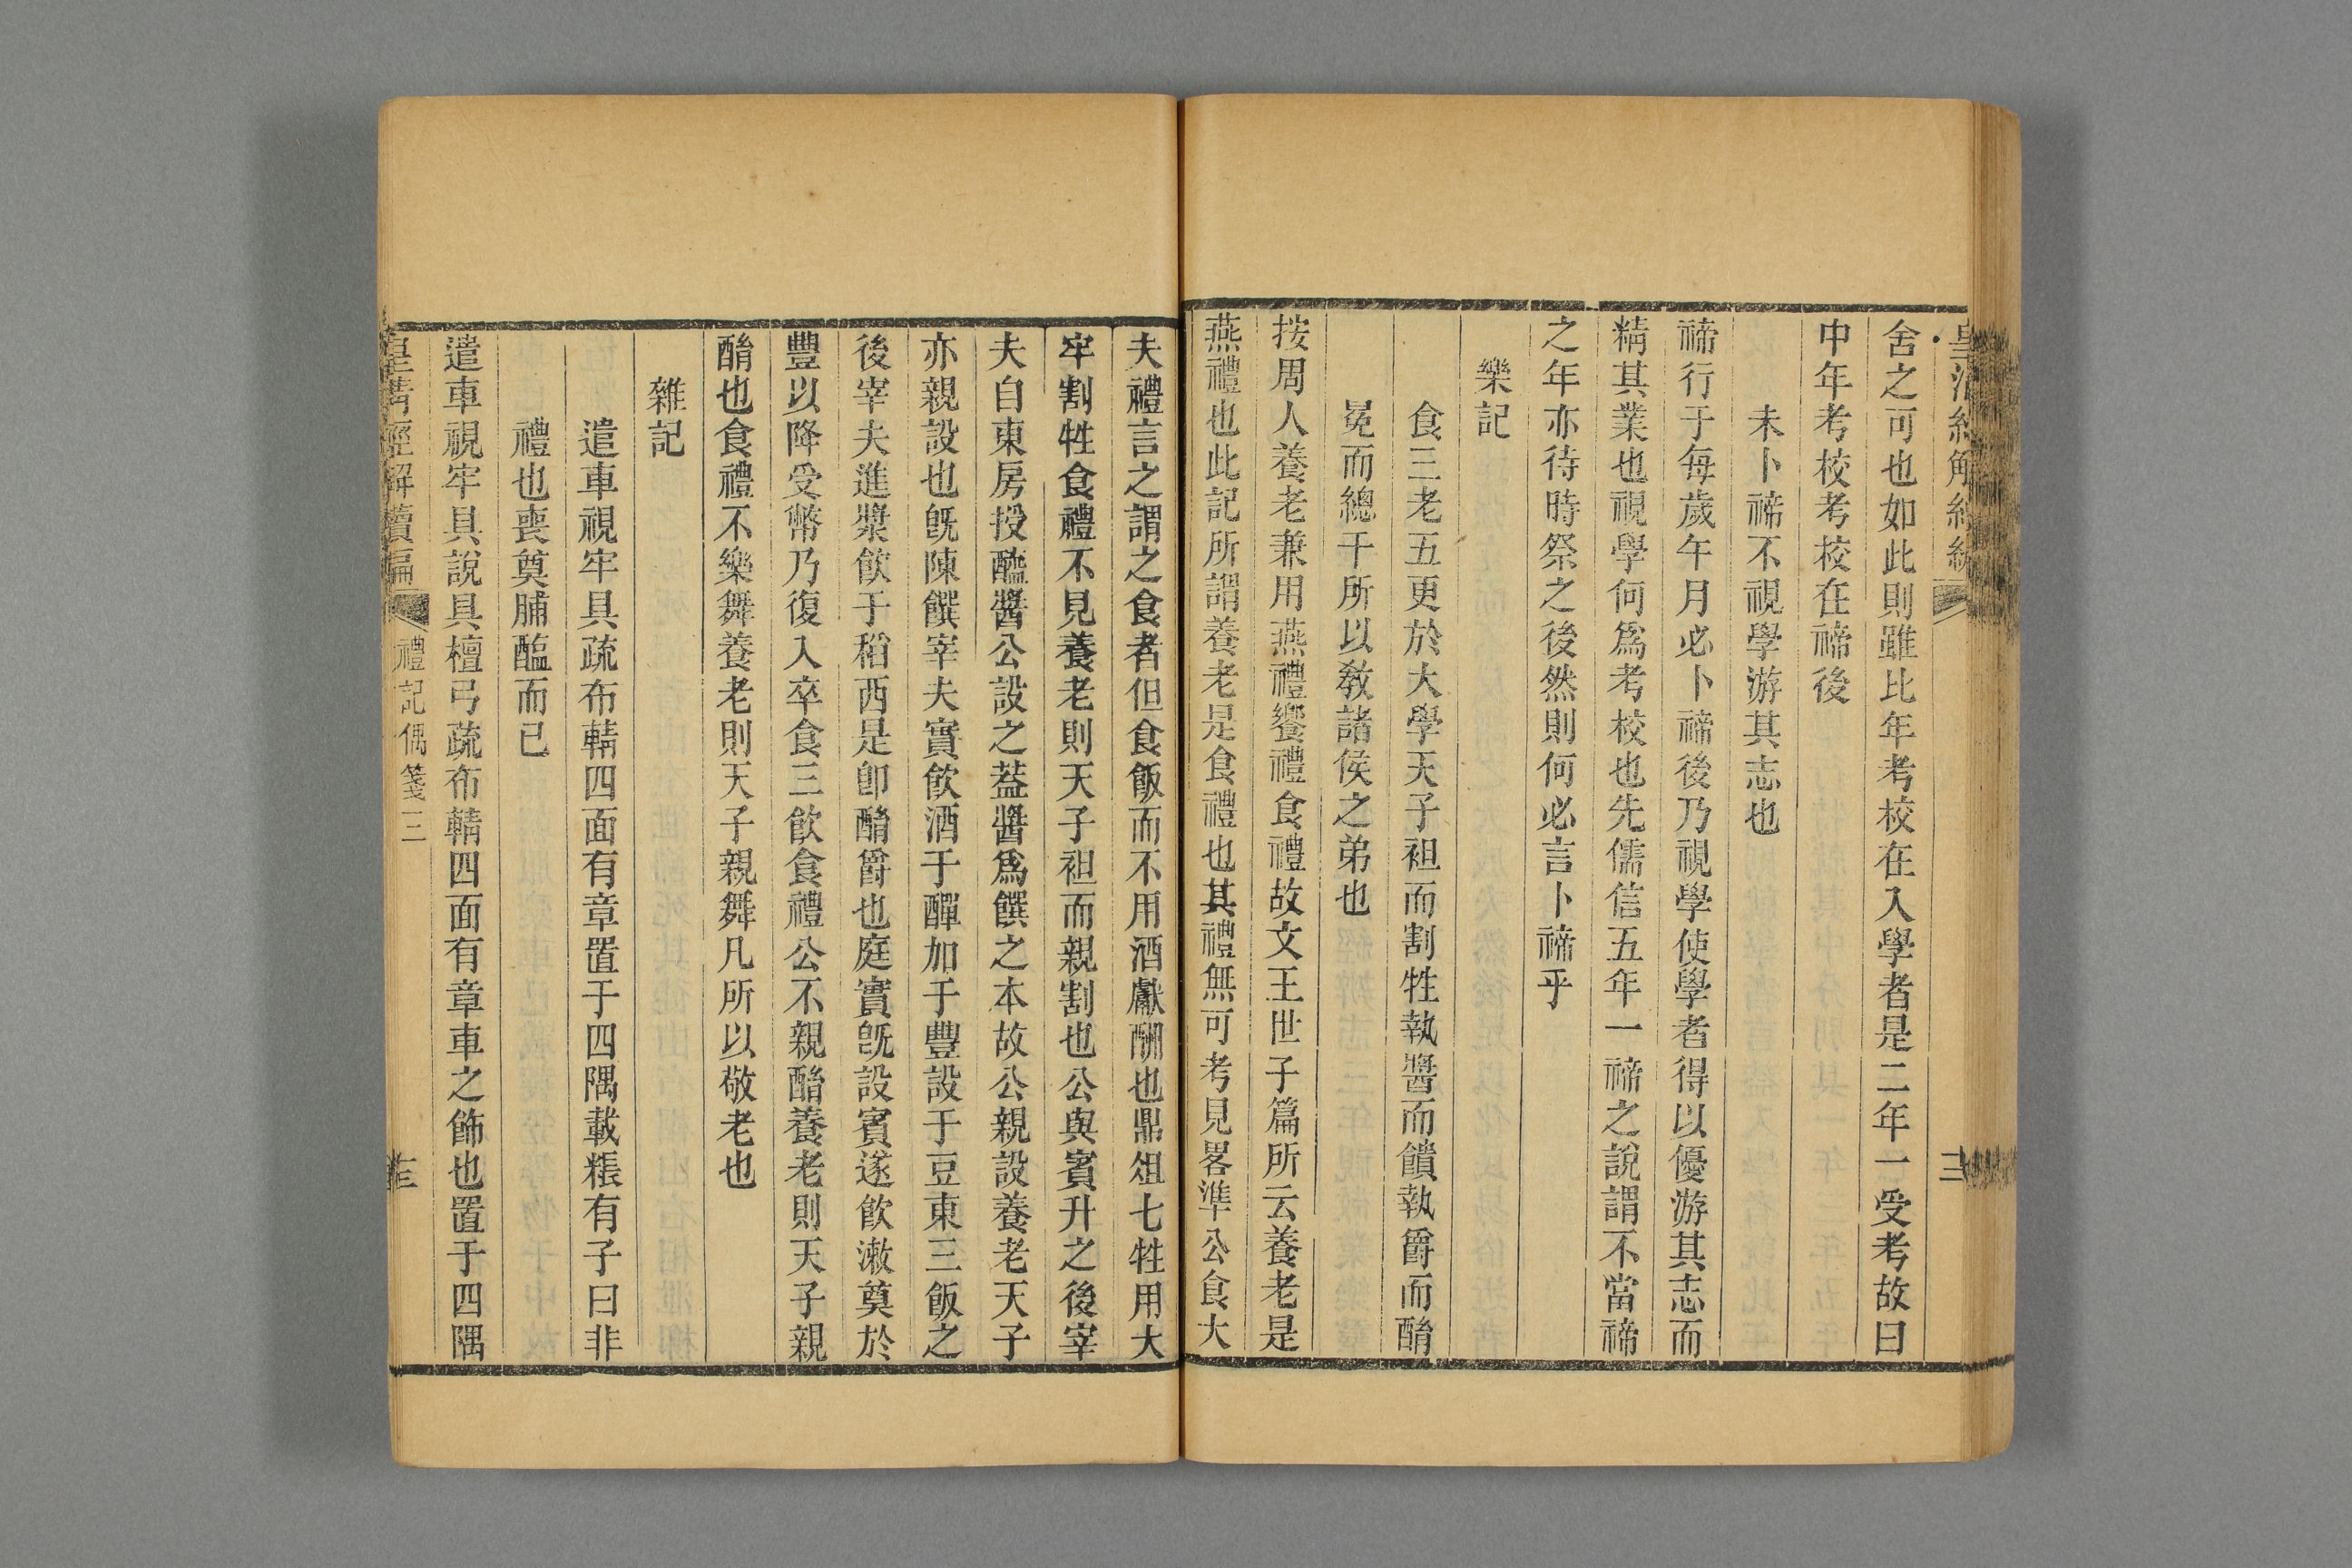 舍之可也如此則雖比年考校在入學者是二年一受考故曰
中年考校考校在禘後
未卜禘不視學游其志也
禘行于每歲午月必卜禘後乃視學使學者得以優游其志而
精其業也視學何爲考校也先儒信五年一禘之說謂不當禘
之年亦待時祭之後然則何必言卜禘乎
樂記
食三老五更於大學天子袒而割牲執醬而饋執爵而酳
冕而總干所以敎諸侯之弟也
按周人養老兼用燕禮饗禮食禮故文王世子篇所云養老是
燕禮也此記所謂養老是食禮也其禮無可考見畧準公食大
夫禮言之謂之食者但食飯而不用酒獻酬也鼎俎七牲用大
牢割牲食禮不見養老則天子袒而親割也公與賓升之後宰
夫自東房授醯醬公設之葢醬爲饌之本故公親設養老天子
亦親設也旣陳饌宰夫實飮酒于觶加于豐設于豆東三飯之
後宰夫進漿飮于稻西是卽酳爵也庭實旣設賓遂飮漱奠於
豐以降受幣乃復入卒食三飮食禮公不親酳養老則天子親
酳也食禮不樂舞養老則天子親舞凡所以敬老也
雜記
遣車視牢具疏布輤四面有章置于四隅載粻有子曰非
禮也喪奠脯醢而已
遣車視牢具說具檀弓疏布輤四面有章車之飾也置于四隅
皇淸經解續編
禮記偶箋三